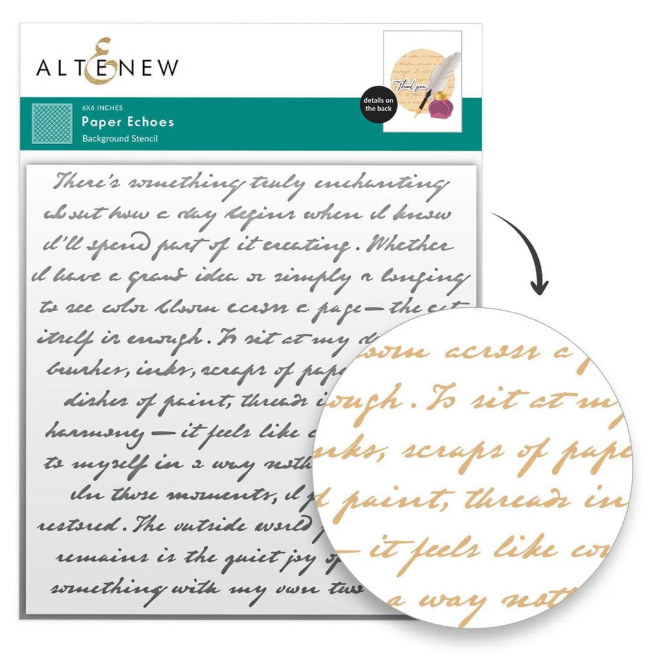 ALTENEW
6X6 INCHES
Paper Echoes
Background Stencil
details on
the back
Thank you
There's something truly enchanting
about how a day begins when I know
I'll spend part of it creating. Whether
I have a grand idea or simply a longing
to see color bloom across a page—the act
itself is enough. To sit at my d
brushes, inks, scraps of pape
dishes of paint, threads i
harmony—it feels like c
to myself in a way noth
In those moments, I f
restored. The outside world f
remains is the quiet joy of
something with my own two
loom across a p
ough. To sit at my
nks, scraps of pape
f paint, threads in
— it feels like co
a way noth